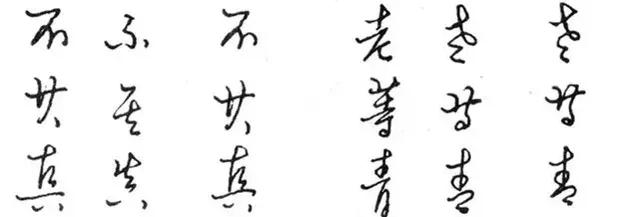 不 不 不 老 老 老
共 其 共 等 等 等
真 真 真 青 青 青